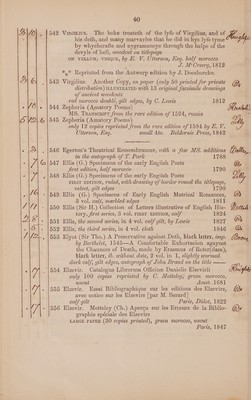 40
542 VIRGILIUS. The boke treateth of the lyfe of Virgilius, and of
his deth, and many marvayles that he did in hys lyfe tyme
by whychcrafte and nygramancye through the helpe of the
devyls of hell, woodcut on titlepage
ON VELLUM, UNIQUE, by E. V. Utterson, Esq. half morocco
J. McCreery, 1812
*** Reprinted from the Antwerp edition by J. Doesborcke
543 Virgilius. Another Copy, on paper (only 50 printed for private
distribution) ILLUSTRATED with 15 original facsimile drawings
of ancient woodcuts
red morocco double, gilt edges, by C. Lewis 1812
544 Zepheria (Amatory Poems)
MS. TRANSCRIPT from the rare edition of 1594, russia
545 Zepheria (Amatory Poems)
only 12 copies reprinted from the rare edition of 1594 by E. V.
Utterson, Esq. small 4to. Beldornie Press, 1842
546 Egerton's Theatrical Remembrancer, with a few MS. additions
in the autograph of T. Park 1788
547 Ellis (G.) Specimens of the early English Poets
first edition, half morocco 1790
548 Ellis (G.) Specimens of the early English Poets
FIRST EDITION, ruled, with drawing of border round the titlepage,
extra, gilt edges 1790
549 Ellis (G.) Specimens of Early English Metrical Romances
3 vol. calf, marbled edges 1811
550 Ellis (Sir H.) Collection of Letters illustrative of English His-
tory, first series, 3 vol. FIRST EDITION, calf 1824
551 Ellis, the second series, in 4 vol. calf gilt, by Lewis 1827
552 Ellis, the third series, in 4 vol. cloth 1846
553 Elyot (Sir Tho.) A Preservative agaynst Deth, black letter,
by Berthelet, 1545—A Comfortable Exhortation agaynst
the Chaunces of Death, made by Erasmus of Roterdam,
black letter, ib. without date, 2 vol. in 1, slightly wormed
dark calf, gilt edges, autograph of John Brand on the title
554 Elzevir. Catalogus Librorum Officinæ Danielis Elzevirii
only 100 copies reprinted by C. Motteley, green morocco,
uncut Amst. 1681
555 Elzevir. Essai Bibliographique sur les editions des Elzevirs,
avec notice sur les Elzevirs [par M. Berard]
calf gilt Paris, Didot, 1822
556 Elzevir. Motteley (Ch.) Aperçu sur les Erreurs de la Biblio-
graphie spéciale des Elzevirs
LARGE PAPER (30 copies printed), green morocco, uncut
Paris, 1847